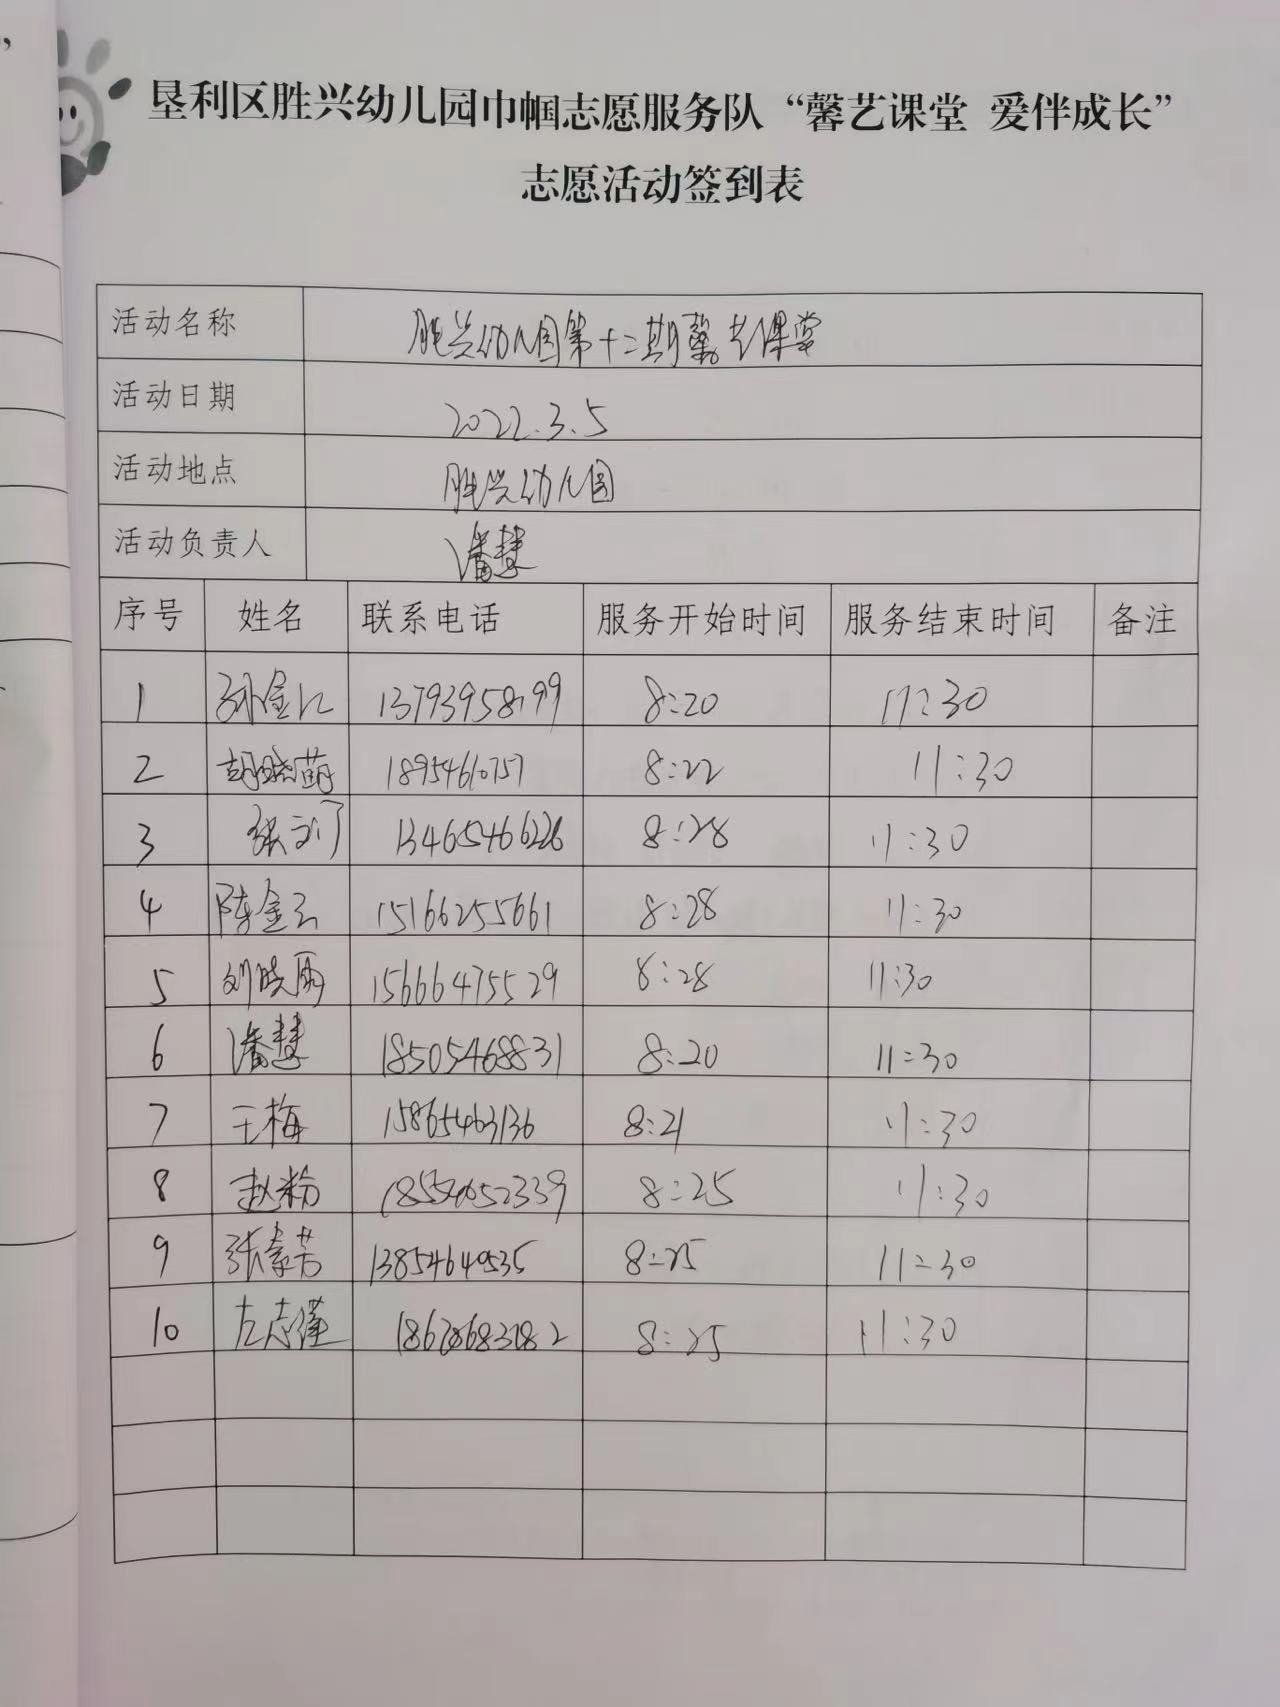 垦利区胜兴幼儿园巾帼志愿服务队“馨艺课堂 爱伴成长”
志愿活动签到表
活动名称 胜兴幼儿园第十二期馨艺课堂
活动日期 2022.3.5
活动地点 胜兴幼儿园
活动负责人 潘慧
序号 姓名 联系电话 服务开始时间 服务结束时间 备注
1 孙金 13793958199 8:20 11:30
2 胡晓萌 18954610757 8:22 11:30
3 张 13465466226 8:28 11:30
4 陈金云 15166255661 8:28 11:30
5 刘晓雨 15666475529 8:28 11:30
6 潘慧 18505468831 8:20 11:30
7 王梅 15865463136 8:21 11:30
8 赵粉 8:25 11:30
9 张素芳 8:25 11:30
10 左志 8:25 11:30